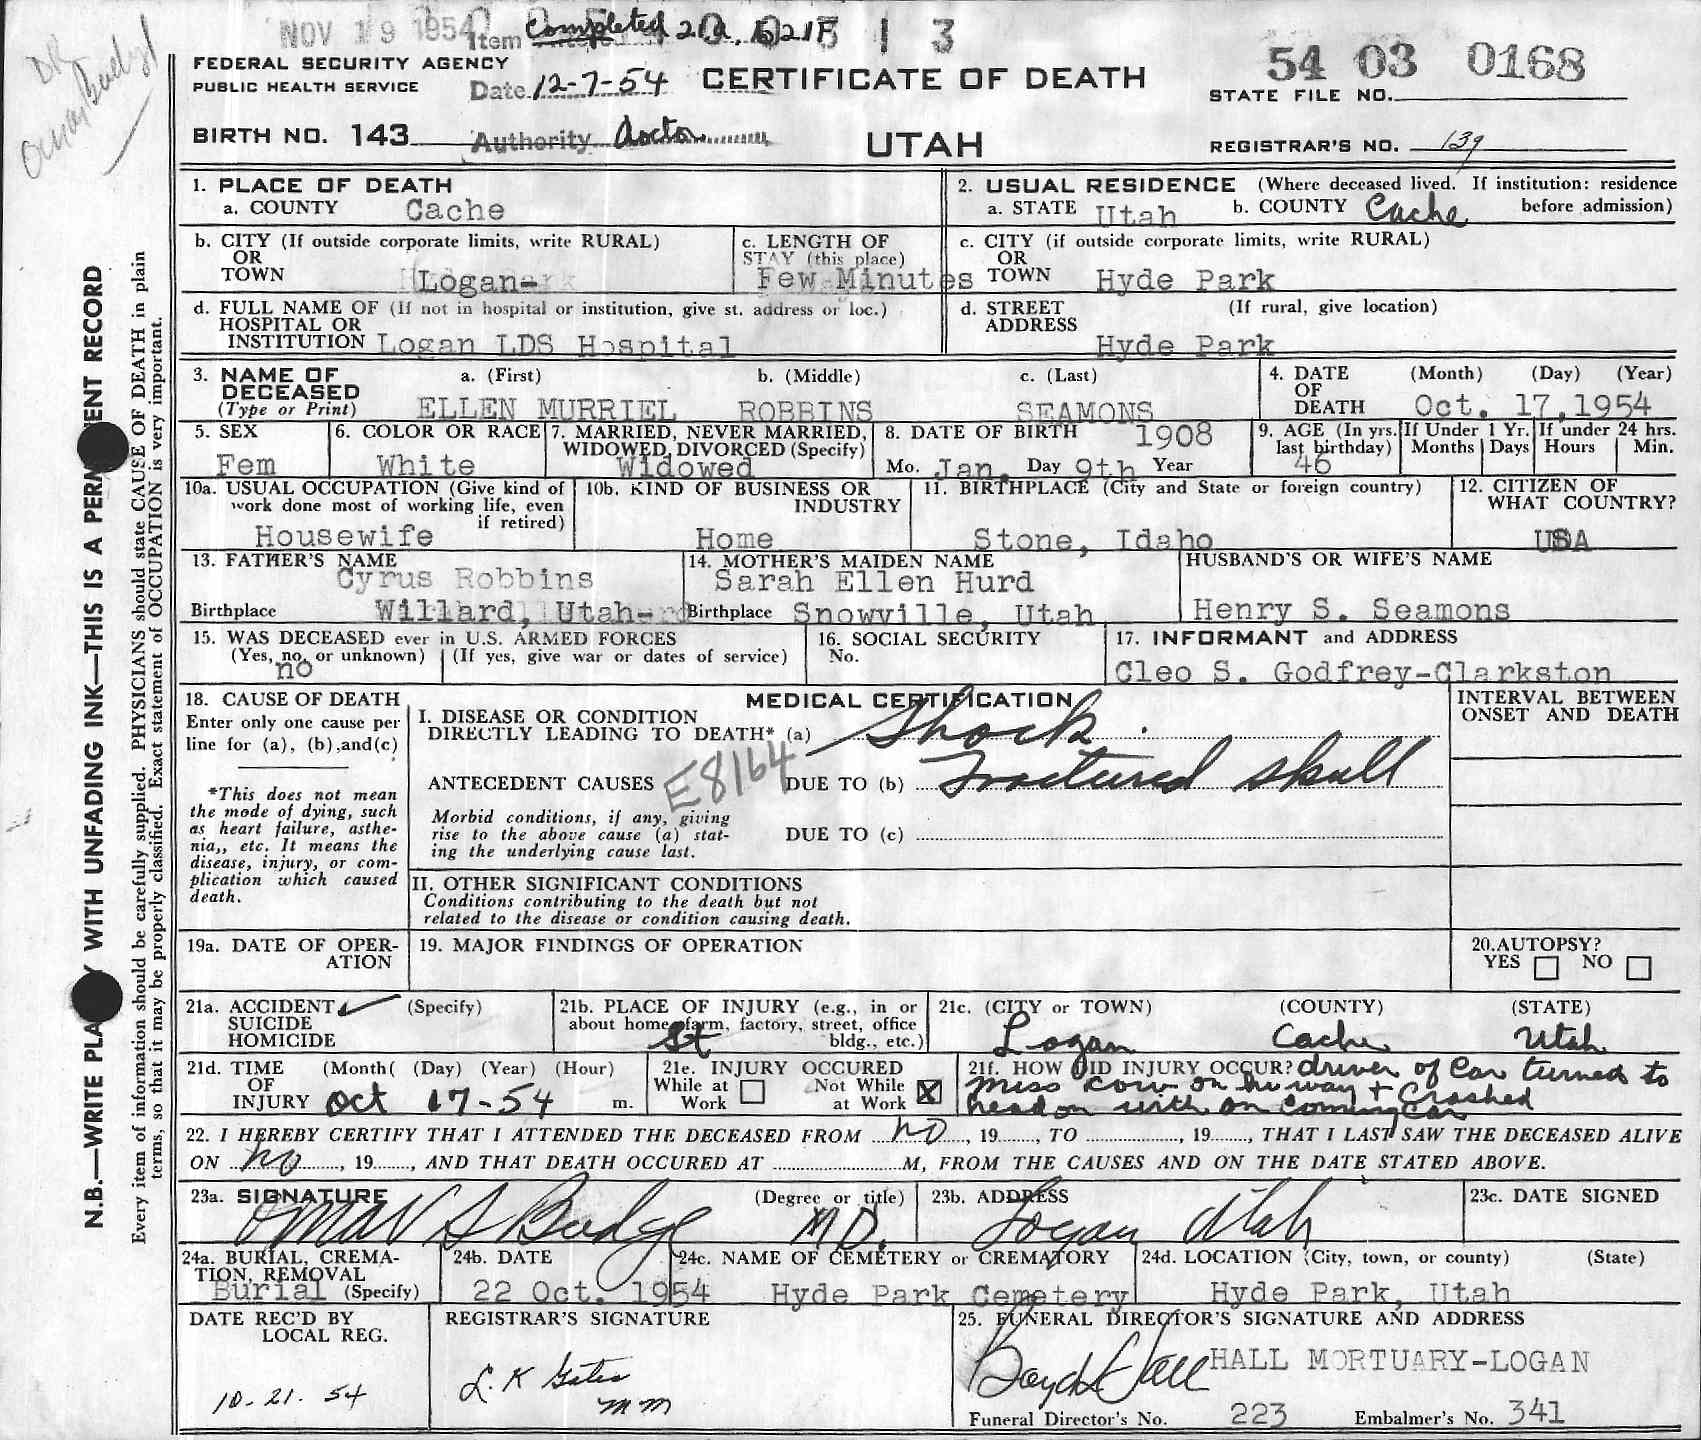 NOV 19 1954
Item Completed 21a, b 21F
13
DR
Omar Budge
FEDERAL SECURITY AGENCY
PUBLIC HEALTH SERVICE
Date 12-7-54
CERTIFICATE OF DEATH
54 03 0168
STATE FILE NO.
BIRTH NO. 143
Authority doctor
UTAH
REGISTRAR'S NO. 139
1. PLACE OF DEATH
a. COUNTY Cache
2. USUAL RESIDENCE (Where deceased lived. If institution: residence before admission)
a. STATE Utah b. COUNTY Cache
b. CITY (If outside corporate limits, write RURAL)
OR
TOWN Logan-
c. LENGTH OF
STAY (this place)
Few Minutes
c. CITY (if outside corporate limits, write RURAL)
OR
TOWN Hyde Park
d. FULL NAME OF (If not in hospital or institution, give st. address or loc.)
HOSPITAL OR
INSTITUTION Logan LDS Hospital
d. STREET (If rural, give location)
ADDRESS
Hyde Park
3. NAME OF DECEASED
(Type or Print)
a. (First) b. (Middle) c. (Last)
ELLEN MURRIEL ROBBINS SEAMONS
4. DATE OF DEATH (Month) (Day) (Year)
Oct. 17, 1954
5. SEX
Fem
6. COLOR OR RACE
White
7. MARRIED, NEVER MARRIED,
WIDOWED, DIVORCED (Specify)
Widowed
8. DATE OF BIRTH 1908
Mo. Jan. Day 9th Year
9. AGE (In yrs. last birthday)
46
If Under 1 Yr.
Months Days
If under 24 hrs.
Hours Min.
10a. USUAL OCCUPATION (Give kind of
work done most of working life, even
if retired)
Housewife
10b. KIND OF BUSINESS OR
INDUSTRY
Home
11. BIRTHPLACE (City and State or foreign country)
Stone, Idaho
12. CITIZEN OF
WHAT COUNTRY?
USA
13. FATHER'S NAME
Cyrus Robbins
Birthplace Willard, Utah-
14. MOTHER'S MAIDEN NAME
Sarah Ellen Hurd
Birthplace Snowville, Utah
HUSBAND'S OR WIFE'S NAME
Henry S. Seamons
15. WAS DECEASED ever in U.S. ARMED FORCES
(Yes, no, or unknown) (If yes, give war or dates of service)
no
16. SOCIAL SECURITY
No.
17. INFORMANT and ADDRESS
Cleo S. Godfrey-Clarkston
18. CAUSE OF DEATH
Enter only one cause per
line for (a), (b), and (c)
*This does not mean
the mode of dying, such
as heart failure, asthe-
nia,, etc. It means the
disease, injury, or com-
plication which caused
death.
MEDICAL CERTIFICATION
I. DISEASE OR CONDITION
DIRECTLY LEADING TO DEATH* (a) Shock
ANTECEDENT CAUSES DUE TO (b) Fractured skull
E8164
Morbid conditions, if any, giving
rise to the above cause (a) stat-
ing the underlying cause last.
DUE TO (c)
II. OTHER SIGNIFICANT CONDITIONS
Conditions contributing to the death but not
related to the disease or condition causing death.
INTERVAL BETWEEN
ONSET AND DEATH
19a. DATE OF OPER-
ATION
19. MAJOR FINDINGS OF OPERATION
20. AUTOPSY?
YES NO
21a. ACCIDENT ✓ (Specify)
SUICIDE
HOMICIDE
21b. PLACE OF INJURY (e.g., in or
about home, farm, factory, street, office
bldg., etc.)
St
21c. (CITY or TOWN) (COUNTY) (STATE)
Logan Cache Utah
21d. TIME (Month( (Day) (Year) (Hour)
OF
INJURY Oct 17-54 m.
21e. INJURY OCCURED
While at Work Not While at Work X
21f. HOW DID INJURY OCCUR? driver of Car turned to
miss cow on hi way + Crashed
head on with on coming car
22. I HEREBY CERTIFY THAT I ATTENDED THE DECEASED FROM no, 19, TO , 19, THAT I LAST SAW THE DECEASED ALIVE
ON no, 19, AND THAT DEATH OCCURED AT M, FROM THE CAUSES AND ON THE DATE STATED ABOVE.
23a. SIGNATURE (Degree or title)
Omar S Budge M D.
23b. ADDRESS
Logan Utah
23c. DATE SIGNED
24a. BURIAL, CREMA-
TION, REMOVAL
Burial (Specify)
24b. DATE
22 Oct. 1954
24c. NAME OF CEMETERY or CREMATORY
Hyde Park Cemetery
24d. LOCATION (City, town, or county) (State)
Hyde Park, Utah
DATE REC'D BY
LOCAL REG.
10-21-54
REGISTRAR'S SIGNATURE
L. K Gates
mm
25. FUNERAL DIRECTOR'S SIGNATURE AND ADDRESS
Boyd Hall HALL MORTUARY-LOGAN
Funeral Director's No. 223 Embalmer's No. 341
N.B.—WRITE PLA Y WITH UNFADING INK—THIS IS A PERM ENT RECORD
Every item of information should be carefully supplied. PHYSICIANS should state CAUSE OF DEATH in plain
terms, so that it may be properly classified. Exact statement of OCCUPATION is very important.